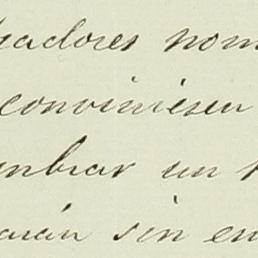 eadores nom
convinieseu
nbrar un
arán sin em